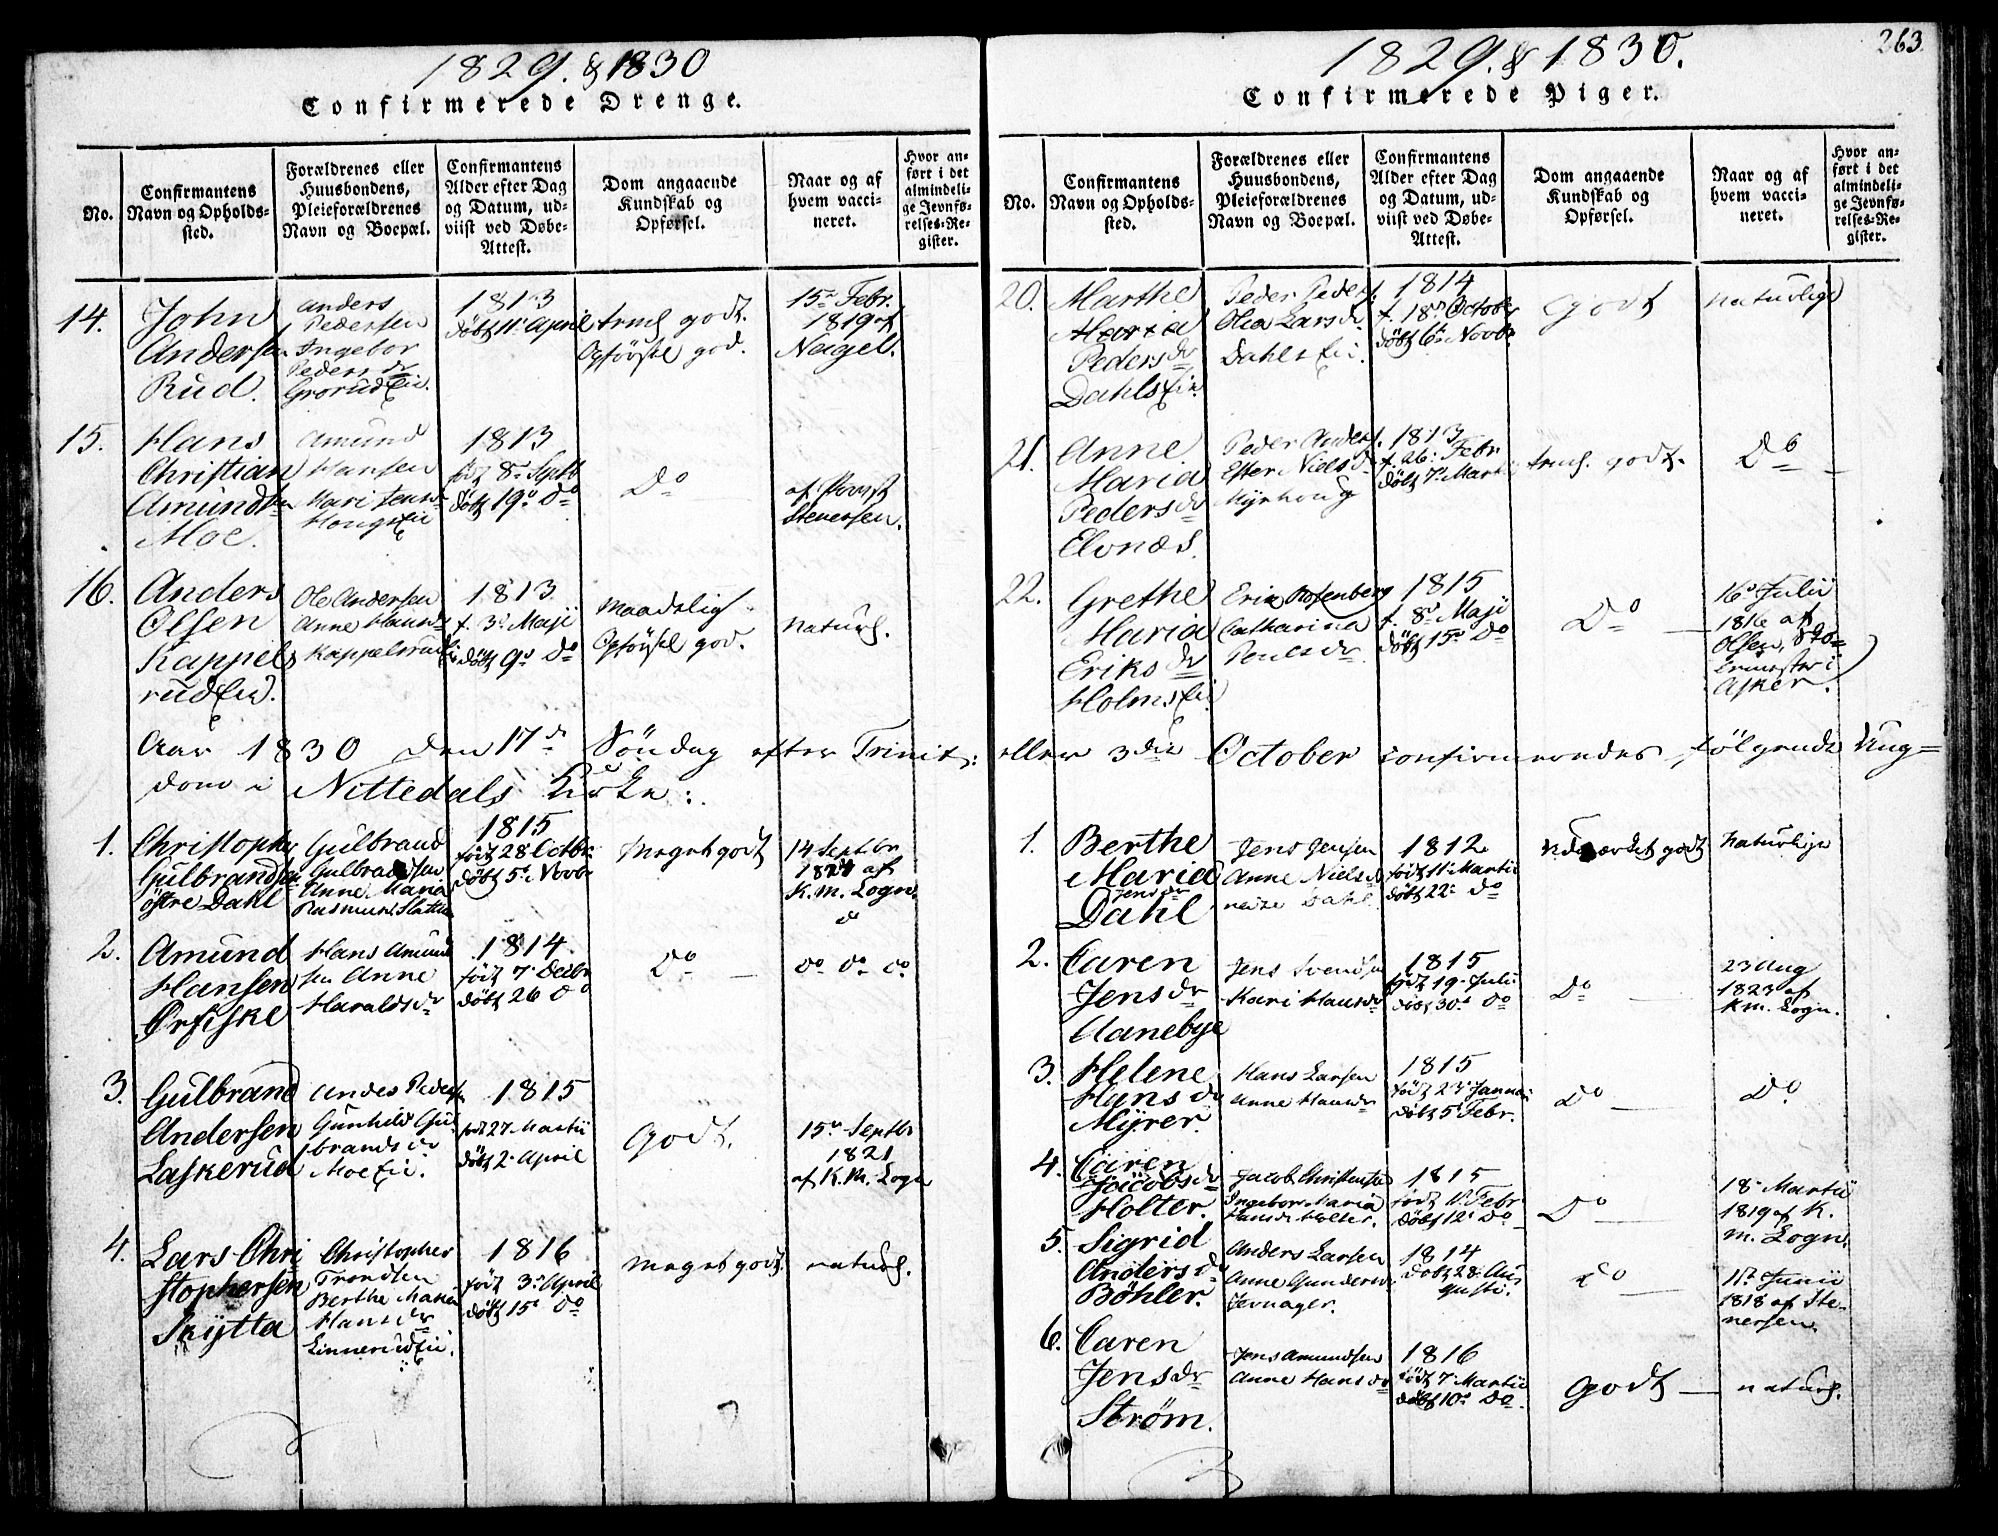 1829. & 1830
Confirmerede Drenge.
No.
Confirmantens Navn og Opholdssted.
Forældrenes eller Huusbondens, Pleieforældrenes Navn og Boepæl.
Confirmantens Alder efter Dag og Datum, udviist ved Døbe-Attest.
Dom angaaende Kundskab og Opførsel.
Naar og af hvem vaccineret.
Hvor anført i det almindelige Jevnførelses-Register.
14.
John
Andersen
Rud.
Anders
Pedersen
Ingebor
Peders dr
Grorud Eie.
1813
döbt 11 April
godt.
Opförsel god.
15 Febr.
1819 af
Neigel.
15.
Hans
Christian
Amundsen
Moe.
Amund
Hansen
Mari Jens
1813
födt 8 Septb
döbt 19 do
do
af Provst
Stenersen.
16.
Anders
Olsen
Kappels
rud Eie.
Ole Andersen
Anne Hansd
Kappelsrud
1813
f. 3 Maji
döbt 9 do
Maadelig
Opförsel god.
naturl.
Aar 1830 den 17de Söndag efter Trinit:
dom i Nittedals Kirke:
1.
Christopher
Gulbrandsen
östre Dahl
Gulbrand
Gulbrandsen
Anne Maria
Rasmusd Slattum
1815
födt 28 Octbr
döbt 5 Novbr
Meget godt
14 Septbr
1824 af
K. m. Logn.
2.
Amund
Hansen
Ørfiske
Hans Amund
sen Anne
Haralds dr
1814
födt 7 Decbr
döbt 26 do
do
do do do
3.
Gulbrand
Andersen
Laskerud
Andes Peders
Gunhild Gul
brands dr
Moe Eie.
1815
födt 27 Martii
döbt 2 April
Godt.
15 Septbr
1821
af K. M. Logn
4.
Lars Chri
stophersen
Skytta
Christopher
Trondsen
Berthe Maria
Hans dr
Linnerud Eie.
1816
födt 3 April
döbt 15 do
Meget godt.
naturl.
263
1829. & 1830.
Confirmerede Piger.
No.
Confirmantens Navn og Opholdssted.
Forældrenes eller Huusbondens, Pleieforældrenes Navn og Boepæl.
Confirmantens Alder efter Dag og Datum, udviist ved Døbe-Attest.
Dom angaaende Kundskab og Opførsel.
Naar og af hvem vaccineret.
Hvor anført i det almindelige Jevnførelses-Register.
20.
Marthe
Maria
Peders dr
Dahls Eie
Peder Peders.
Olea Lars dr
Dahls Eie.
1814
f. 18 October
döbt 6 Novbr
Godt
Naturlige
21.
Anne
Maria
Peders dr
Elvnæs.
Peder Anders.
Ester Niels d
Myrhoug
1813
f. 26 Febr
döbt 7 Martii
godt.
do
22.
Grethe
Maria
Eriks dr
Holms Eie
Erik Rosenberg
Catharina
Pouls dr
1815
f. 8 Maji
döbt 15 do
do
16 Julii
1816 af
Olsen,
i
Asker.
eller 3die October confirmeredes følgende Ung=
1.
Berthe
Maria
Jens dr
Dahl
Jens Jensen
Anne Niels d
nedre Dahl
1812
födt 11 Martii
döbt 22 do
Udmærket godt
Naturlige
2.
Caren
Jens dr
Aanebye
Jens Svendsen
Kari Hans dr
1815
födt 19 Julii
döbt 30 do
do
23 Aug
1823 af
K m. Logn.
3.
Helene
Hans dr
Myrer.
Hans Larsen
Anne Hans dr
1815
födt 23 Januari
döbt 5 Febr.
do
do
4.
Caren
Jacobs dr
Holter.
Jacob Christensen
Ingebor Maria
Hans dr Holter.
1815
födt Febr
döbt 12 do
do
18 Martii
1819 af K.
m. Logn.
5.
Sigrid
Anders dr
Böhler.
Anders Larsen
Anne Gunders d
Jernager.
1814
döbt 28 Au
gusti.
do
Junii
1818 af Ste-
nersen.
6.
Caren
Jens dr
Strøm.
Jens Amundsen
Anne Hans dr
1816
födt 7 Martii
döbt 10 do.
Godt
naturl.